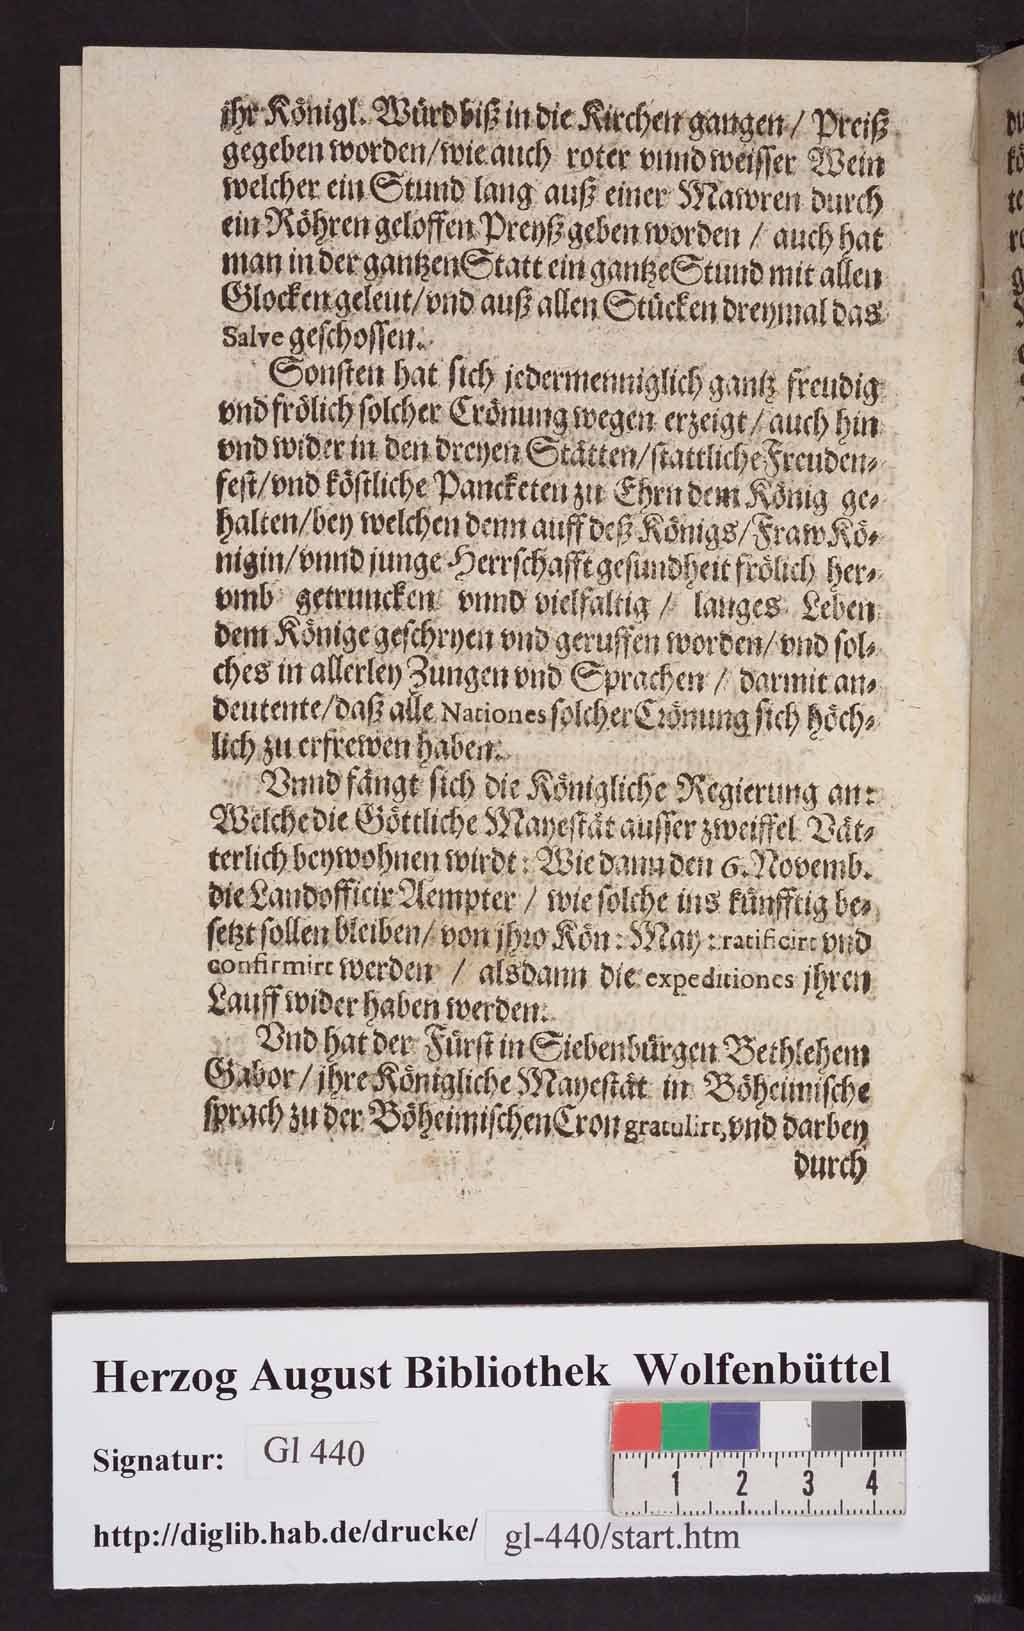 jhr Königl. Würd biß in die Kirchen gangen / Preiß
gegeben worden/wie auch roter vnnd weisser Wein
welcher ein Stund lang auß einer Mawren durch
ein Röhren geloffen Preyß geben worden / auch hat
man in der gantzen Statt ein gantze Stund mit allen
Glocken geleut/vnd auß allen Stücken dreymal das
Salve geschossen.
Sonsten hat sich jedermenniglich gantz freudig
vnd frölich solcher Crönung wegen erzeigt/auch hin
vnd wider in den dreyen Stätten/stattliche Freuden-
fest/vnd köstliche Pancketen zu Ehrn dem König ge-
halten/bey welchen denn auff deß Königs/Fraw Kö-
nigin/vnnd junge Herrschafft gesundheit frölich her-
vmb getruncken vnnd vielfaltig / langes Leben
dem Könige geschryen vnd geruffen worden/vnd sol-
ches in allerley Zungen vnd Sprachen / darmit an-
deutente/daß alle Nationes solcher Crönung sich höch-
lich zu erfrewen haben.
Vnnd fängt sich die Königliche Regierung an:
Welche die Göttliche Mayestät ausser zweiffel Vät-
terlich beywohnen wirdt: Wie dann den 6. Novemb.
die Landofficir Aempter / wie solche ins künfftig be-
setzt sollen bleiben/von jhro Kön: May: ratificirt vnd
confirmirt werden / alsdann die expeditiones jhren
Lauff wider haben werden.
Vnd hat der Fürst in Siebenbürgen Bethlehem
Gabor/jhre Königliche Mayestät in Böheimische
sprach zu der Böheimischen Cron gratulirt, vnd darbey
durch
Herzog August Bibliothek Wolfenbüttel
Signatur: Gl 440
http://diglib.hab.de/drucke/ gl-440/start.htm
1 2 3 4